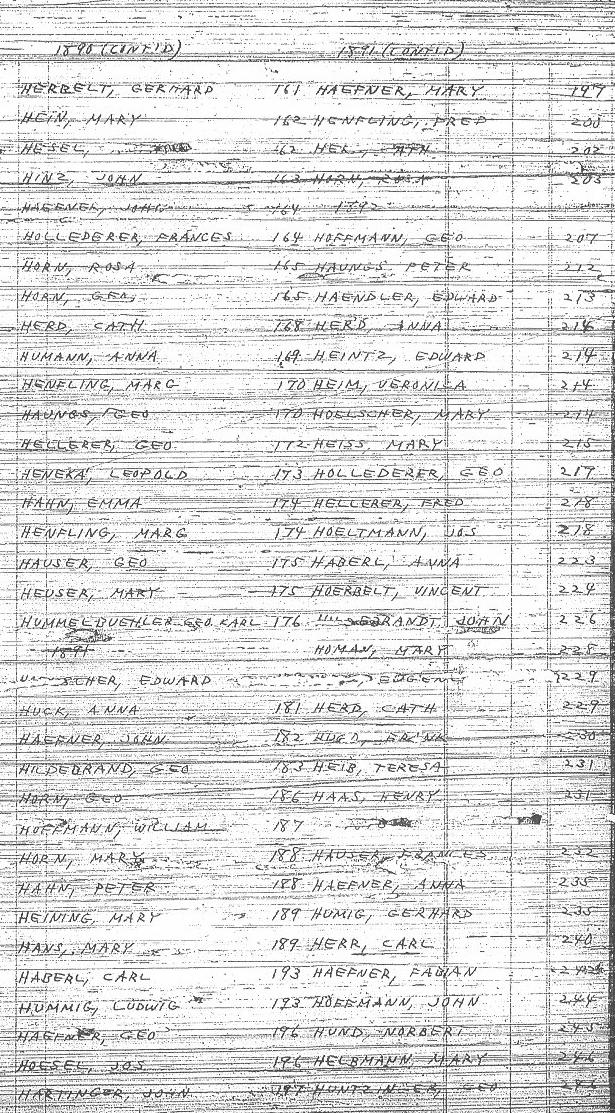 1890 (CONT'D) 1891 (CONT'D)
HERBELT, GERHARD 161 HAEFNER, MARY 197
HEIN, MARY 162 HENFLING, FRED 200
HESEL, 162 202
HINZ, JOHN 163 HORN, ROSA 203
HAEFNER, JOHN 164 1892
HOLLEDERER, FRANCES 164 HOFFMANN, GEO 207
HORN, ROSA 165 HAUNGS, PETER 212
HORN, GEO, 165 HAENDLER, EDWARD 213
HERD, CATH 168 HERD, ANNA 214
HUMANN, ANNA 169 HEINTZ, EDWARD 214
HENFLING, MARG 170 HEIM, VERONICA 214
HAUNGS, GEO 170 HOELSCHER, MARY 214
HELLERER, GEO 172 HEISS, MARY 215
HENEKA, LEOPOLD 173 HOLLEDERER, GEO 217
HAHN, EMMA 174 HELLERER, FRED 218
HENFLING, MARG 174 HOELTMANN, JOS 218
HAUSER, GEO 175 HABERL, ANNA 223
HEUSER, MARY 175 HOERBELT, VINCENT 224
HUMMELBUEHLER GEO. KARL 176 JOHN 226
1891 HOMAN, MARY 228
EDWARD EUGENE 229
HUCK, ANNA 181 HERD, CATH 229
HAEFNER, JOHN 182 230
HILDEBRAND, GEO 183 HEIB, TERESA 231
HORN, GEO 186 HAAS, HENRY 231
HOFFMANN, WILLIAM 187
HORN, MARY 188 HAUSER, FRANCES 232
HAHN, PETER 188 HAEFNER, ANNA 235
HEINING, MARY 189 HUMIG, GERHARD 235
HANS, MARY 189 HERR, CARL 240
HABERL, CARL 193 HAEFNER, FABIAN 242
HUMMIG, LUDWIG 193 HOFFMANN, JOHN 244
HAEFNER, GEO 196 HUND, NORBERT 245
HOESEL, JOS 196 HELBMANN, MARY 246
HARTINGER, JOHN 197 HUNTZINGER, GEO 246